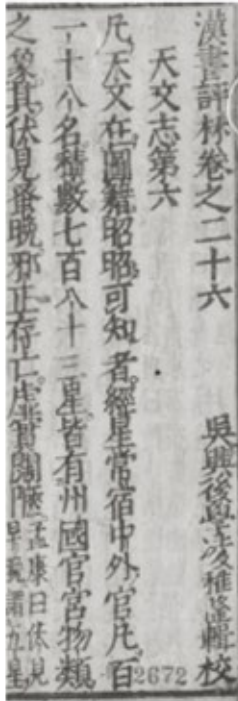 漢書評林卷之二十六
吳興後學凌稚隆輯校
天文志第六
凡天文在圖籍昭昭可知者經星常宿中外官凡百
一十八名積數七百八十三星皆有州國官宮物類
之象其伏見蚤晚邪正存亡虛實闊陿孟康曰伏見
早晚謂五星
2672